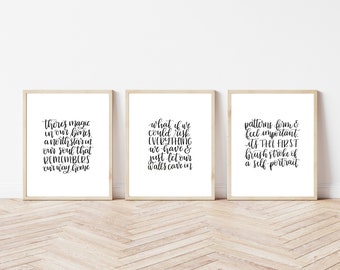 there's magic
in our bones
a north star in
our soul that
REMEMBERS
our way home
what if we
could risk
EVERYTHING
we have &
just let our
walls cave in
patterns form &
feel important
it's THE FIRST
brush stroke of
a self portrait